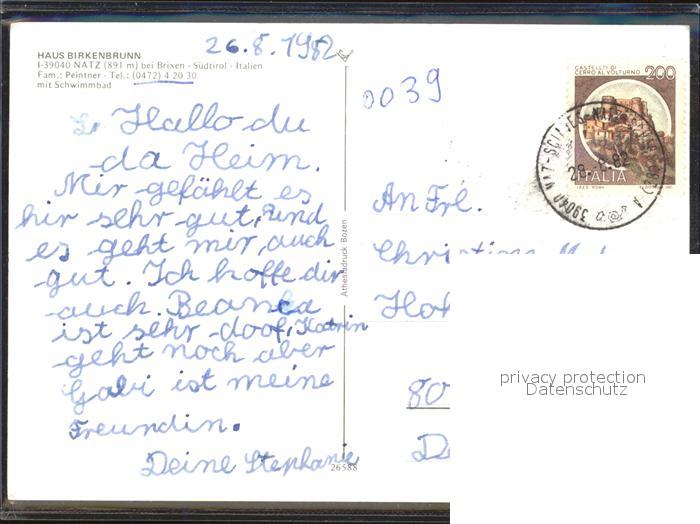 HAUS BIRKENBRUNN
I-39040 NATZ (891 m) bei Brixen - Südtirol - Italien
Fam.: Peintner - Tel.: (0472) 4 20 30
mit Schwimmbad
26.8.1982
0039
Hallo du
da Heim.
Mir gefählt es
hir sehr gut, und
es geht mir auch
gut. Ich hoffe dir
auch. Beanca
ist sehr doof, Katrin
geht noch aber
Gabi ist meine
Freundin.
Deine Stephanie
Athesiadruck Bozen
26588
CASTELLO DI
CERRO AL VOLTURNO 200
ITALIA
39040 NAZ-SCIAVES-NATZ
An Frl.
Christiane
80
privacy protection
Datenschutz